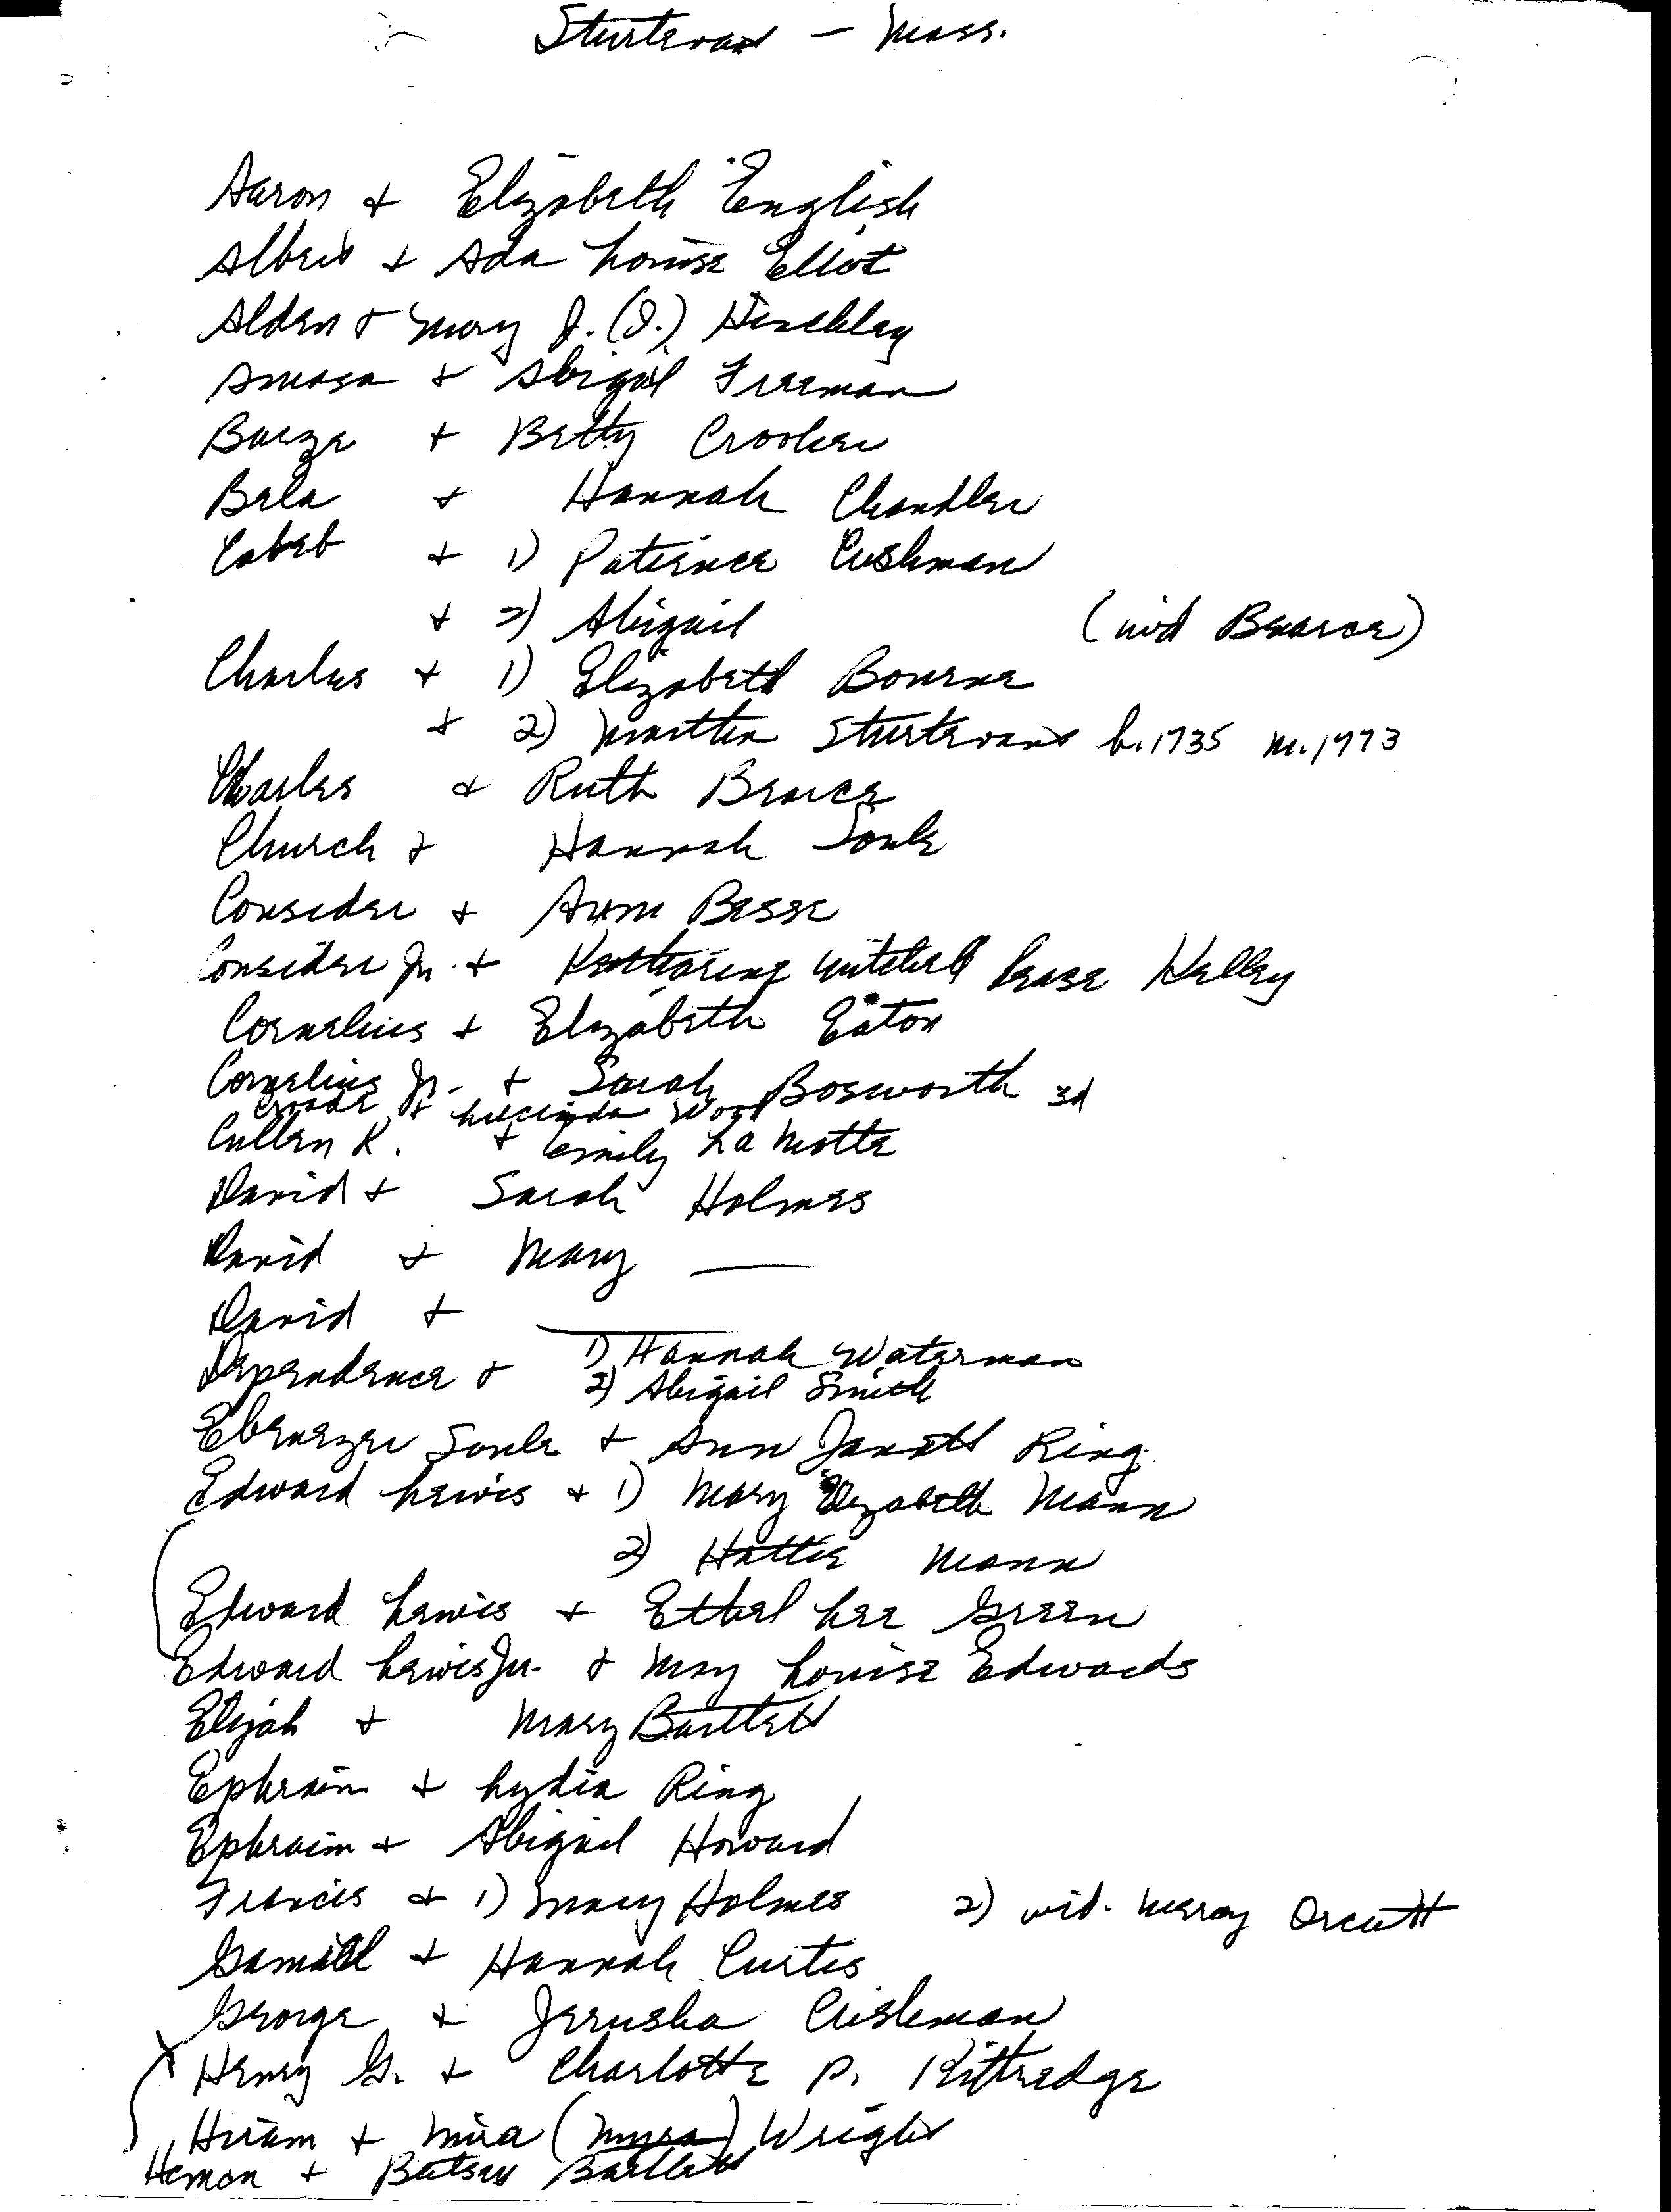 Sturtevant - Mass.
Aaron + Elizabeth English
Albert + Ada Louise Eliot
Alden + Mary J. (I.) Hinckley
Amasa + Abigail Freeman
Barze + Betty Crooker
Bela + Hannah Chandler
Caleb + 1) Patience Cushman
+ 2) Abigail (wid Bearce)
Charles + 1) Elizabeth Bourne
+ 2) Martha Sturtevant b. 1735 m. 1773
Charles + Ruth Bearce
Church + Hannah Soule
Consider + Anna Besse
Consider Jr. + Katharine Mitchell Pease Kelley
Cornelius + Elizabeth Eaton
Cornelius Jr. + Sarah Bosworth 3d
+ Lucinda Wood
Cullen K. + Emily La Motte
David + Sarah Holmes
David + Mary —
David + —
Dependence + 1) Hannah Waterman
2) Abigail Smith
Ebenezer Soule + Ann Janett Ring
Edward Lewis + 1) Mary Elizabeth Mann
2) Hattie Mann
Edward Lewis + Ethel Lee Green
Edward Lewis Jr. + May Louise Edwards
Elijah + Mary Bartlett
Ephraim + Lydia Ring
Ephraim + Abigail Howard
Francis + 1) Mary Holmes 2) wid. Mercy Orcutt
Gamaliel + Hannah Curtis
George + Jerusha Cushman
Henry G. + Charlotte P. Kittredge
Hiram + Mira (Myra) Wright
Heman + Betsey Bartlett